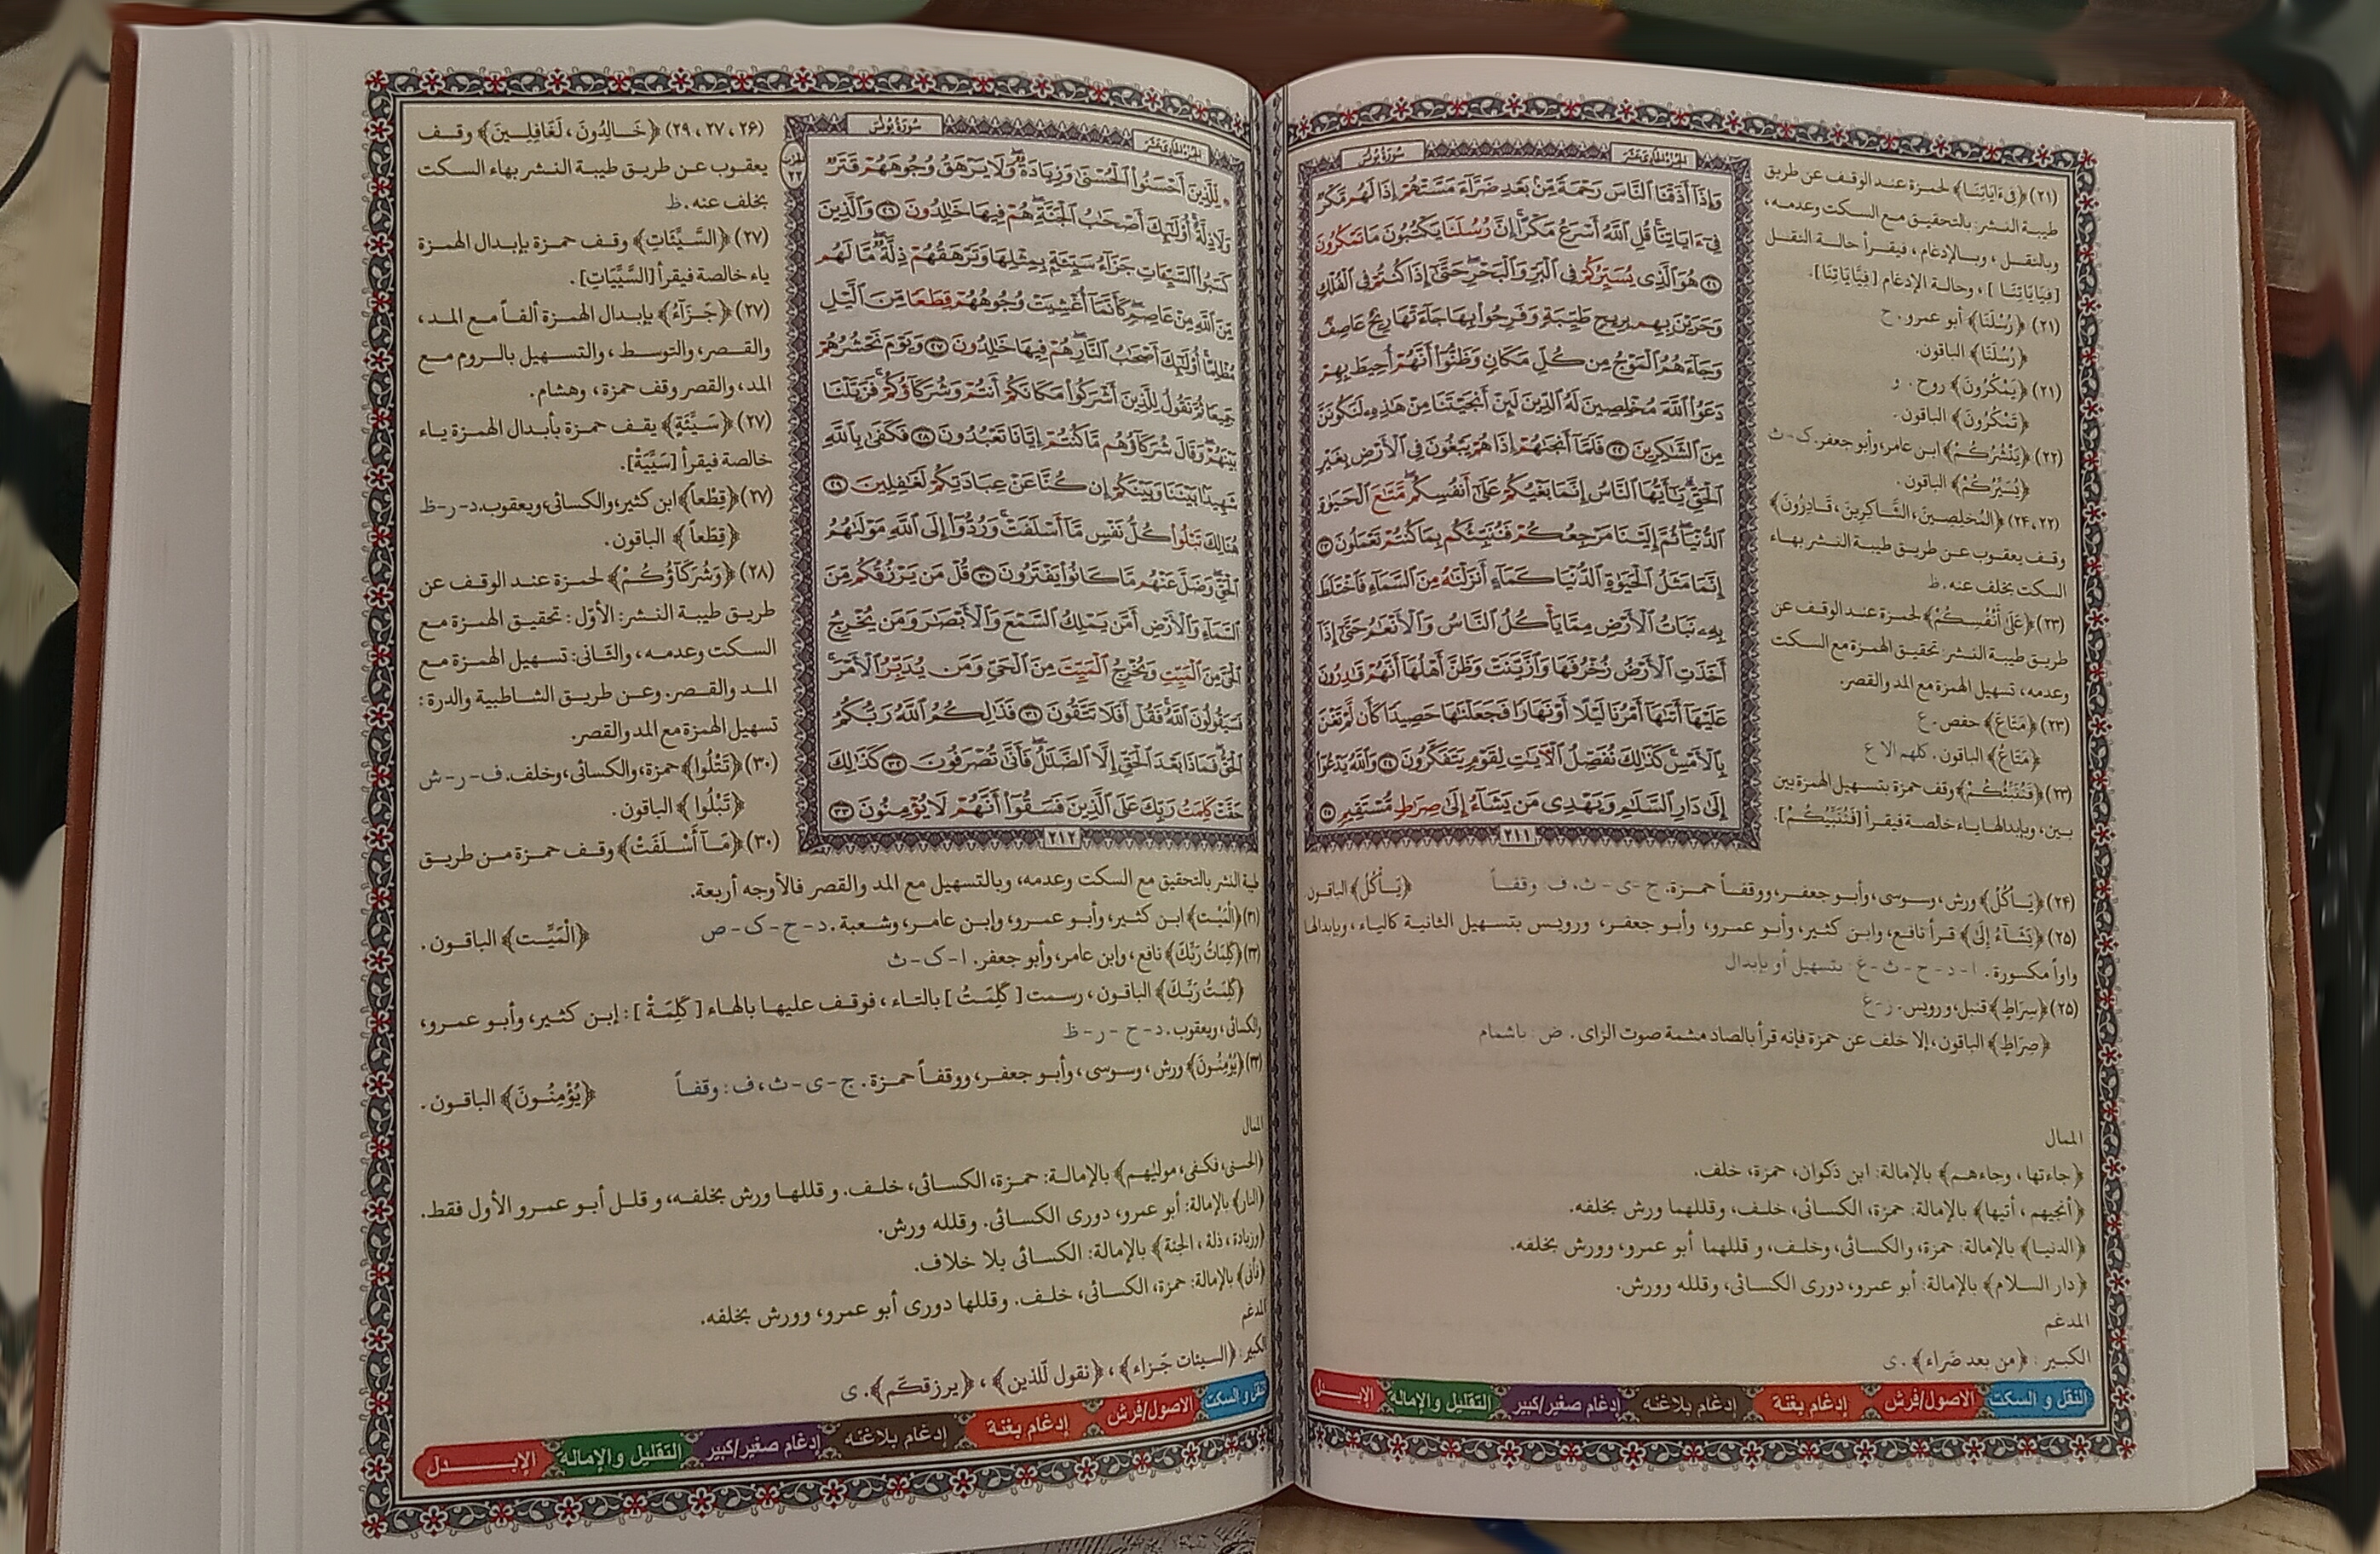 سورة يونس
الجزء الحادي عشر
وَإِذَا أَذَقْنَا النَّاسَ رَحْمَةً مِّنْ بَعْدِ ضَرَّاءَ مَسَّتْهُمْ إِذَا لَهُم مَّكْرٌ
فِي ءَايَاتِنَا قُلِ اللَّهُ أَسْرَعُ مَكْرًا إِنَّ رُسُلَنَا يَكْتُبُونَ مَا تَمْكُرُونَ
٢١ هُوَ الَّذِي يُسَيِّرُكُمْ فِي الْبَرِّ وَالْبَحْرِ حَتَّى إِذَا كُنتُمْ فِي الْفُلْكِ
وَجَرَيْنَ بِهِم بِرِيحٍ طَيِّبَةٍ وَفَرِحُوا بِهَا جَاءَتْهَا رِيحٌ عَاصِفٌ
وَجَاءَهُمُ الْمَوْجُ مِن كُلِّ مَكَانٍ وَظَنُّوا أَنَّهُمْ أُحِيطَ بِهِمْ
دَعَوُا اللَّهَ مُخْلِصِينَ لَهُ الدِّينَ لَئِنْ أَنجَيْتَنَا مِنْ هَذِهِ لَنَكُونَنَّ
مِنَ الشَّاكِرِينَ ٢٢ فَلَمَّا أَنجَاهُمْ إِذَا هُمْ يَبْغُونَ فِي الْأَرْضِ بِغَيْرِ
الْحَقِّ يَا أَيُّهَا النَّاسُ إِنَّمَا بَغْيُكُمْ عَلَى أَنفُسِكُم مَّتَاعَ الْحَيَوةِ
الدُّنْيَا ثُمَّ إِلَيْنَا مَرْجِعُكُمْ فَنُنَبِّئُكُم بِمَا كُنتُمْ تَعْمَلُونَ ٢٣
إِنَّمَا مَثَلُ الْحَيَوةِ الدُّنْيَا كَمَاءٍ أَنزَلْنَاهُ مِنَ السَّمَاءِ فَاخْتَلَطَ
بِهِ نَبَاتُ الْأَرْضِ مِمَّا يَأْكُلُ النَّاسُ وَالْأَنْعَامُ حَتَّى إِذَا
أَخَذَتِ الْأَرْضُ زُخْرُفَهَا وَازَّيَّنَتْ وَظَنَّ أَهْلُهَا أَنَّهُمْ قَادِرُونَ
عَلَيْهَا أَتَاهَا أَمْرُنَا لَيْلًا أَوْ نَهَارًا فَجَعَلْنَاهَا حَصِيدًا كَأَن لَّمْ تَغْنَ
بِالْأَمْسِ كَذَلِكَ نُفَصِّلُ الْآيَاتِ لِقَوْمٍ يَتَفَكَّرُونَ ٢٤ وَاللَّهُ يَدْعُوا
إِلَى دَارِ السَّلَامِ وَيَهْدِي مَن يَشَاءُ إِلَى صِرَاطٍ مُّسْتَقِيمٍ ٢٥
٢١١
(٢١) ﴿فِي ءَايَاتِنَا﴾ لحمزة عند الوقف عن طريق
طيبة النشر: بالتحقيق مع السكت وعدمه،
وبالنقل، وبالإدغام، فيقرأ حالة النقل
[فِيَايَاتِنَا]، وحالة الإدغام [فِيَّايَاتِنَا].
(٢١) ﴿رُسْلَنَا﴾ أبو عمرو. ح
﴿رُسُلَنَا﴾ الباقون.
(٢١) ﴿يَمْكُرُونَ﴾ روح. و
﴿تَمْكُرُونَ﴾ الباقون.
(٢٢) ﴿يَنْشُرُكُمْ﴾ ابن عامر، وأبو جعفر. ك - ث
﴿يُسَيِّرُكُمْ﴾ الباقون.
(٢٤،٢٢) ﴿المُخلِصِينَ، الشَّاكِرِينَ، قَادِرُونَ﴾
وقف يعقوب عن طريق طيبة النشر بهاء
السكت بخلف عنه. ظ
(٢٣) ﴿عَلَى أَنْفُسِكُمْ﴾ لحمزة عند الوقف عن
طريق طيبة النشر: تحقيق الهمزة مع السكت
وعدمه، تسهيل الهمزة مع المد والقصر.
(٢٣) ﴿مَتَاعَ﴾ حفص. ع
﴿مَتَاعُ﴾ الباقون. كلهم الا ع
(٢٣) ﴿فَنُنَبِّئُكُمْ﴾ وقف حمزة بتسهيل الهمزة بين
بين، وبإبدالها ياء خالصة فيقرأ [فَنُنَبِّيُكُمْ].
(٢٤) ﴿يَاكُلُ﴾ ورش، وسوسى، وأبو جعفر، ووقفاً حمزة. ج - ى - ث، ف: وقفاً ﴿يَأْكُلُ﴾ الباقون
(٢٥) ﴿يَشَاءُ إِلَى﴾ قرأ نافع، وابن كثير، وأبو عمرو، وأبو جعفر، ورويس بتسهيل الثانية كالياء، وبإبدالها
واواً مكسورة. ا - د - ح - ث - غ: بتسهيل أو بإبدال
(٢٥) ﴿سِرَاطٍ﴾ قنبل، ورويس. ز - غ
﴿صِرَاطٍ﴾ الباقون، إلا خلف عن حمزة فإنه قرأ بالصاد مشمة صوت الزاى. ض: باشمام
الممال
﴿جاءتها، وجاءهم﴾ بالإمالة: ابن ذكوان، حمزة، خلف.
﴿أنجيهم، أتيها﴾ بالإمالة: حمزة، الكسائى، خلف، وقللهما ورش بخلفه.
﴿الدنيا﴾ بالإمالة: حمزة، والكسائى، وخلف، و قللهما أبو عمرو، وورش بخلفه.
﴿دار السلام﴾ بالإمالة: أبو عمرو، دورى الكسائى، وقلله وورش.
المدغم
الكبير: ﴿من بعد ضَراء﴾. ى
النقل و السكت
الاصول/فرش
إدغام بغنة
إدغام بلاغنه
إدغام صغير/كبير
التقليل والإماله
الإبدل
الجزء الحادي عشر
سورة يونس
الحزب ٢٢
لِّلَّذِينَ أَحْسَنُوا الْحُسْنَى وَزِيَادَةٌ وَلَا يَرْهَقُ وُجُوهَهُمْ قَتَرٌ
وَلَا ذِلَّةٌ أُولَئِكَ أَصْحَابُ الْجَنَّةِ هُمْ فِيهَا خَالِدُونَ ٢٦ وَالَّذِينَ
كَسَبُوا السَّيِّئَاتِ جَزَاءُ سَيِّئَةٍ بِمِثْلِهَا وَتَرْهَقُهُمْ ذِلَّةٌ مَّا لَهُم
مِّنَ اللَّهِ مِنْ عَاصِمٍ كَأَنَّمَا أُغْشِيَتْ وُجُوهُهُمْ قِطَعًا مِّنَ الَّيْلِ
مُظْلِمًا أُولَئِكَ أَصْحَابُ النَّارِ هُمْ فِيهَا خَالِدُونَ ٢٧ وَيَوْمَ نَحْشُرُهُمْ
جَمِيعًا ثُمَّ نَقُولُ لِلَّذِينَ أَشْرَكُوا مَكَانَكُمْ أَنتُمْ وَشُرَكَاؤُكُمْ فَزَيَّلْنَا
بَيْنَهُمْ وَقَالَ شُرَكَاؤُهُم مَّا كُنتُمْ إِيَّانَا تَعْبُدُونَ ٢٨ فَكَفَى بِاللَّهِ
شَهِيدًا بَيْنَنَا وَبَيْنَكُمْ إِن كُنَّا عَنْ عِبَادَتِكُمْ لَغَافِلِينَ ٢٩
هُنَالِكَ تَبْلُوا كُلُّ نَفْسٍ مَّا أَسْلَفَتْ وَرُدُّوا إِلَى اللَّهِ مَوْلَاهُمُ
الْحَقِّ وَضَلَّ عَنْهُم مَّا كَانُوا يَفْتَرُونَ ٣٠ قُلْ مَن يَرْزُقُكُم مِّنَ
السَّمَاءِ وَالْأَرْضِ أَمَّن يَمْلِكُ السَّمْعَ وَالْأَبْصَارَ وَمَن يُخْرِجُ
الْحَيَّ مِنَ الْمَيِّتِ وَيُخْرِجُ الْمَيِّتَ مِنَ الْحَيِّ وَمَن يُدَبِّرُ الْأَمْرَ
فَسَيَقُولُونَ اللَّهُ فَقُلْ أَفَلَا تَتَّقُونَ ٣١ فَذَلِكُمُ اللَّهُ رَبُّكُمُ
الْحَقُّ فَمَاذَا بَعْدَ الْحَقِّ إِلَّا الضَّلَالُ فَأَنَّى تُصْرَفُونَ ٣٢ كَذَلِكَ
حَقَّتْ كَلِمَتُ رَبِّكَ عَلَى الَّذِينَ فَسَقُوا أَنَّهُمْ لَا يُؤْمِنُونَ ٣٣
٢١٢
(٢٦، ٢٧، ٢٩) ﴿خَالِدُونَ، لَغَافِلِينَ﴾ وقف
يعقوب عن طريق طيبة النشر بهاء السكت
بخلف عنه. ظ
(٢٧) ﴿السَّيِّئَاتِ﴾ وقف حمزة بإبدال الهمزة
ياء خالصة فيقرأ [السَّيِّيَاتِ].
(٢٧) ﴿جَزَاءُ﴾ بإبدال الهمزة ألفاً مع المد،
والقصر، والتوسط، والتسهيل بالروم مع
المد، والقصر وقف حمزة، وهشام.
(٢٧) ﴿سَيِّئَةٍ﴾ يقف حمزة بأبدال الهمزة ياء
خالصة فيقرأ [سَيِّيَةْ].
(٢٧) ﴿قِطْعاً﴾ ابن كثير، والكسائى، ويعقوب. د - ر - ظ
﴿قِطَعاً﴾ الباقون.
(٢٨) ﴿وَشُرَكَاؤُكُمْ﴾ لحمزة عند الوقف عن
طريق طيبة النشر: الأول: تحقيق الهمزة مع
السكت وعدمه، والثانى: تسهيل الهمزة مع
المد والقصر. وعن طريق الشاطبية والدرة:
تسهيل الهمزة مع المد والقصر.
(٣٠) ﴿تَتْلُوا﴾ حمزة، والكسائى، وخلف. ف - ر - ش
﴿تَبْلُوا﴾ الباقون.
(٣٠) ﴿مَا أَسْلَفَتْ﴾ وقف حمزة من طريق
طيبة النشر بالتحقيق مع السكت وعدمه، وبالتسهيل مع المد والقصر فالأوجه أربعة.
(٣١) ﴿الْمَيْت﴾ ابن كثير، وأبو عمرو، وابن عامر، وشعبة. د - ح - ک - ص ﴿الْمَيِّت﴾ الباقون.
(٣٣) ﴿كَلِمَاتُ رَبِّكَ﴾ نافع، وابن عامر، وأبو جعفر. ا - ک - ث
﴿كَلِمَتُ رَبِّكَ﴾ الباقون، رسمت [كَلِمَتُ] بالتاء، فوقف عليها بالهاء [كَلِمَةْ]: إبن كثير، وأبو عمرو،
والكسائى، ويعقوب. د - ح - ر - ظ
(٣٣) ﴿يُوْمِنُونَ﴾ ورش، وسوسى، وأبو جعفر، ووقفاً حمزة. ج - ى - ث، ف: وقفاً ﴿يُؤْمِنُونَ﴾ الباقون.
الممال
﴿الحسنى، فكفى، موليهم﴾ بالإمالة: حمزة، الكسائى، خلف. و قللها ورش بخلفه، و قلل أبو عمرو الأول فقط.
﴿النار﴾ بالإمالة: أبو عمرو، دورى الكسائى. وقلله ورش.
﴿وزيادة، ذلة، الجنة﴾ بالإمالة: الكسائى بلا خلاف.
﴿فأنى﴾ بالإمالة: حمزة، الكسائى، خلف. وقللها دورى أبو عمرو، وورش بخلفه.
المدغم
الكبير: ﴿السيئات جَزاء﴾، ﴿نقول لّلذين﴾، ﴿يرزقكّم﴾. ى
النقل و السكت
الاصول/فرش
إدغام بغنة
إدغام بلاغنه
إدغام صغير/كبير
التقليل والإماله
الإبدل